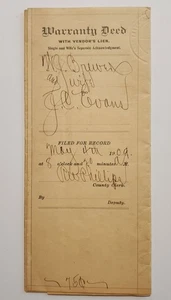 Warranty Deed
WITH VENDOR'S LIEN.
Single and Wife's Separate Acknowledgment.
Brewer
and wife
J. C. Evans
FILED FOR RECORD
May 19 09.
at 8 o'clock and minutes M.
Phillips
County Clerk.
By
Deputy.